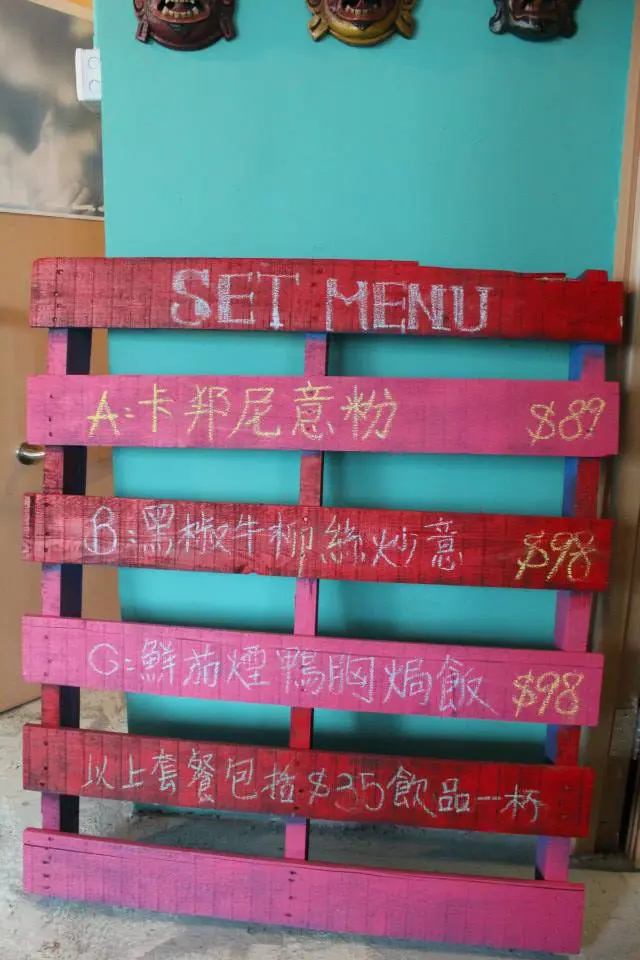 SET MENU
A:卡邦尼意粉 $89
B:黑椒牛柳絲炒意 $98
C:鮮茄煙鴨胸焗飯 $98
以上套餐包括$35飲品一杯